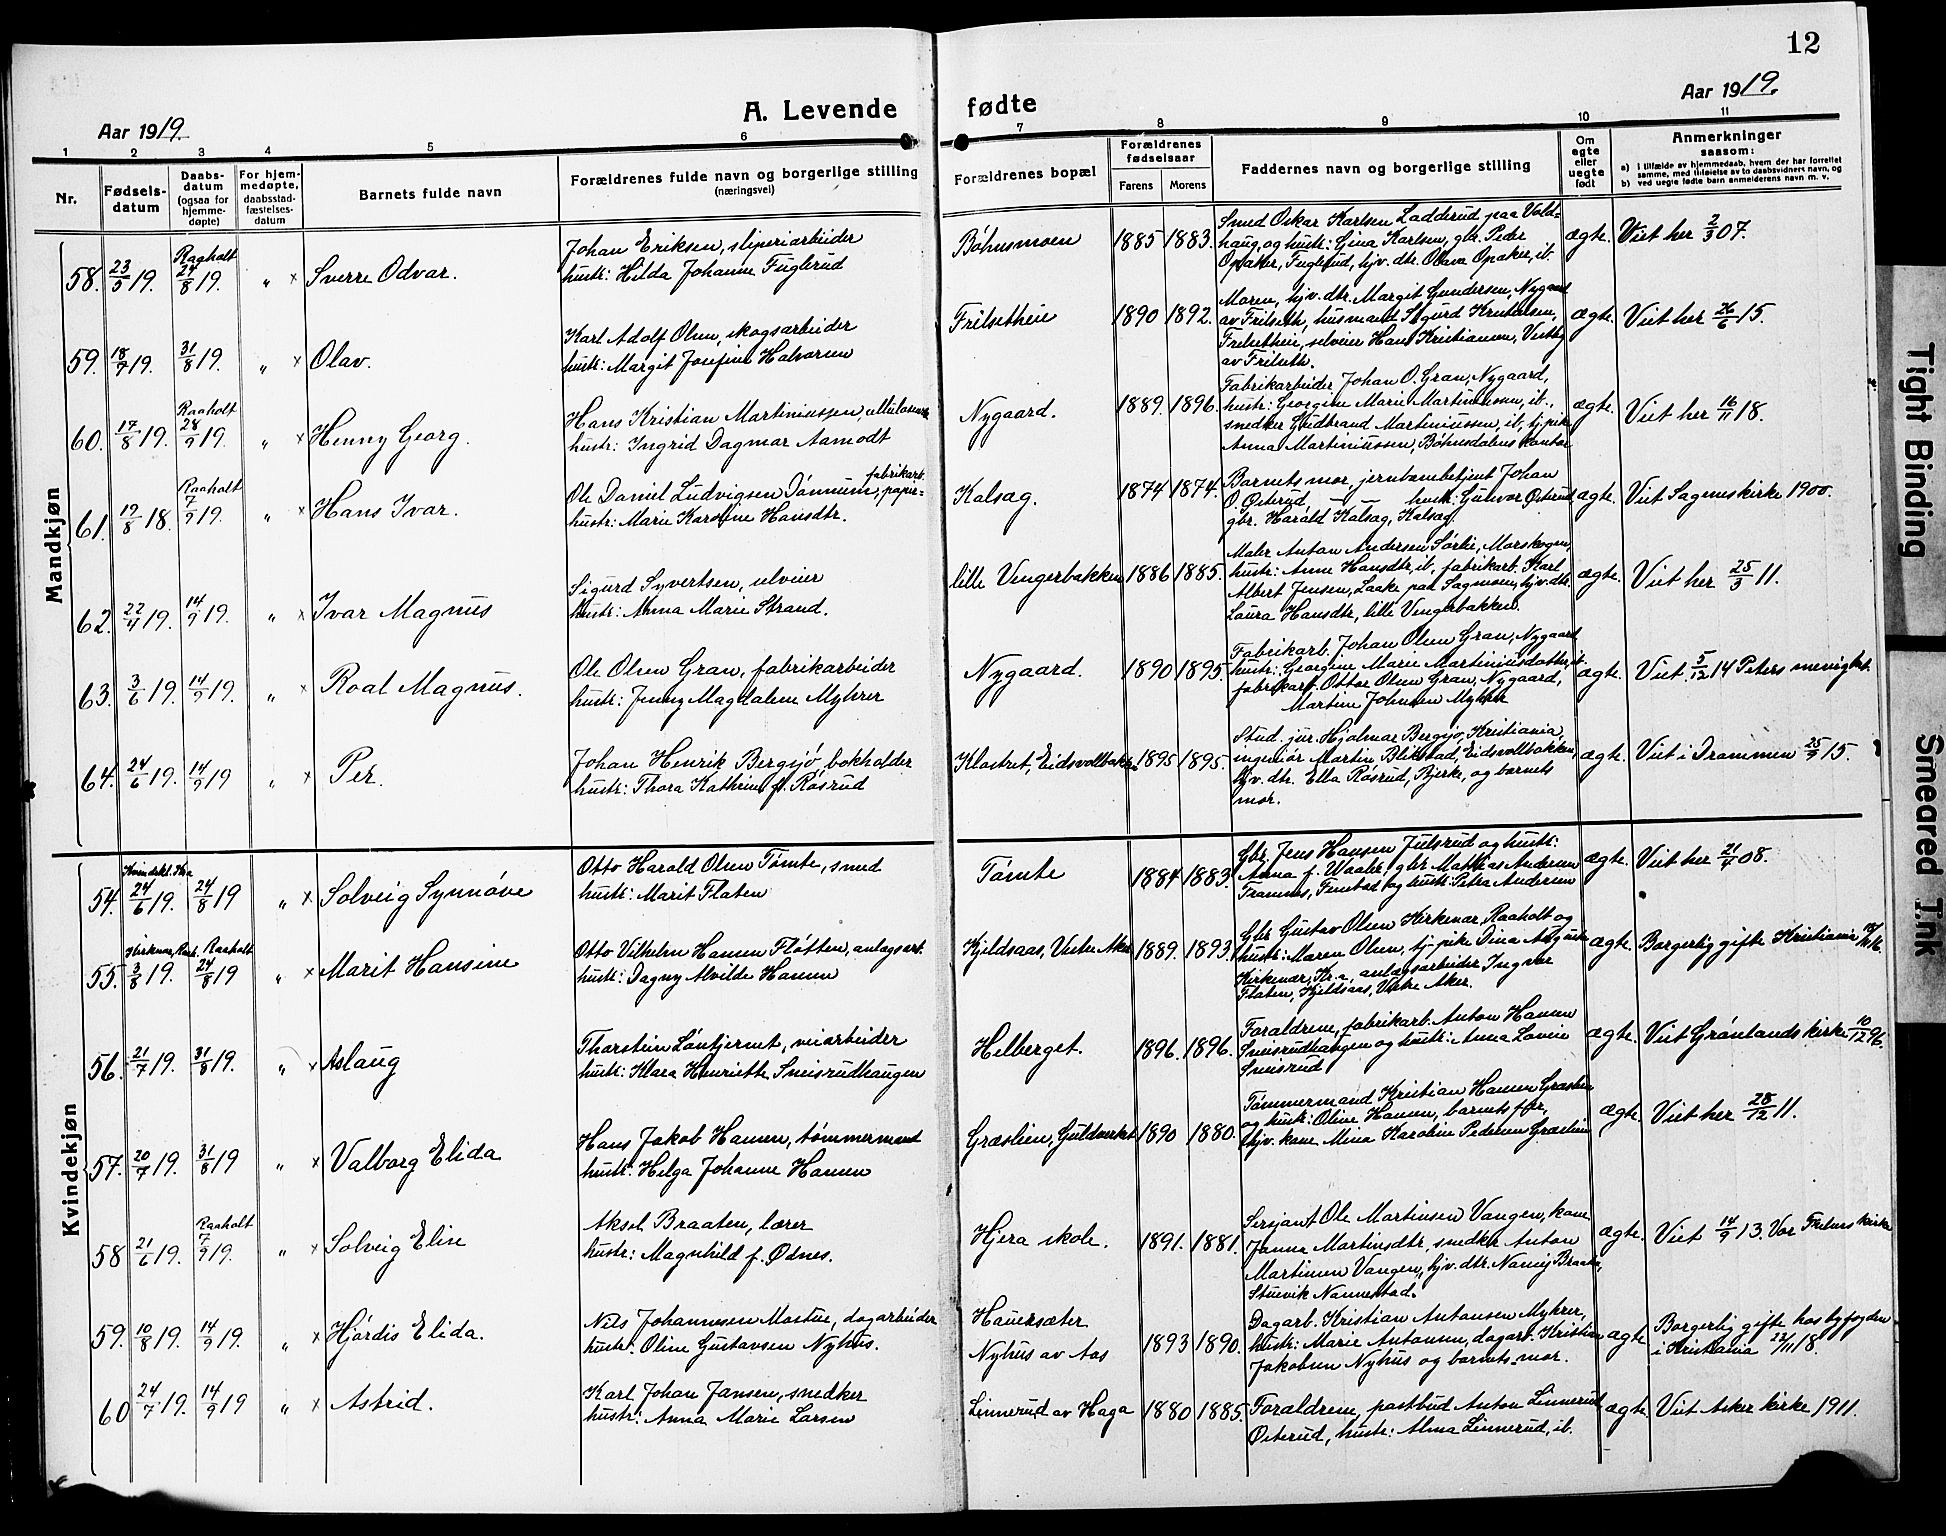 12
Aar 1919.
A. Levende
fødte
Aar 1919.
1 2 3 4 5 6 7 8 9 10 11
Nr.
Fødsels-
datum
Daabs-
datum
(ogsaa for
hjemme-
døpte)
For hjem-
medøpte,
daabsstad-
fæstelses-
datum
Barnets fulde navn
Forældrenes fulde navn og borgerlige stilling
(næringsvei)
Forældrenes bopæl
Forældrenes
fødselsaar
Farens
Morens
Faddernes navn og borgerlige stilling
Om
egte
eller
uegte
født
Anmerkninger
saasom:
a) i tilfælde av hjemmedaab, hvem der har forrettet
samme, med tilføielse av to daabsvidners navn, og
b) ved uegte fødte barn anmelderens navn m. v.
Mandkjøn
58. 23/5 19. Raaholt 24/8 19. „ × Sverre Odvar.
Johan Eriksen, sliperiarbeider
hustr: Hilda Johanne Fuglerud
Bøhnsmoen 1885 1883.
Smed Oskar Karlsen Ladderud paa Vold-
haug, og hustr: Gina Karlsen, gbr. Peder
Opaker, Fuglerud, hjv. dtr. Olava Opaker, ib.
ægte. Viet her 2/3 07.
59. 18/7 19. 31/8 19. „ × Olav.
Karl Adolf Olsen, skogsarbeider
hustr: Margit Josefine Halvorsen
Frilsetheie 1890 1892.
Maren, hjv. dtr. Margit Gundersen, Nygaard
av Frilseth, husmand Sigurd Knutelsen,
Frilsetheie, selveier Hans Kristiansen, Vestby
av Frilseth.
ægte. Viet her 26/6 15.
60. 17/8 19. Raaholt 28/9 19. „ × Henny Georg.
Hans Kristian Martiniussen,
hustr: Ingrid Dagmar Aamodt
Nygaard. 1889. 1896.
Fabrikarbeider Johan O. Gran, Nygaard,
hustr: Georgine Marie Martiniussen, ib.,
snedker Gudbrand Martiniussen, ib, tj. pike
Anna Martiniussen, Bøhnsdalens kontor
ægte. Viet her 16/11 18.
61. 19/8 18. Raaholt 7/9 19. „ × Hans Ivar.
Ole Daniel Ludvigsen Dønnum, papir- fabrikarb.
hustr: Marie Karoline Hansdtr.
Kalsæg. 1874 1874.
Barnets mor, jernbanebetjent Johan
O. Østerud, hustr: Gulvor Østerud
gbr. Harald Kalsæg, Kalsæg.
ægte. Viet Sagnes kirke 1900.
62. 22/4 19. 14/9 19. „ × Ivar Magnus
Sigurd Syvertsen, selveier
hustr: Anna Marie Strand.
lille Vengerbakken 1886 1885.
Maler Anton Andersen Sørlie, Morskogen,
hustr: Anne Hansdtr, ib, fabrikarb. Karl
Albert Jensen, Laake paa Sagmoen, hjv. dtr.
Laura Hansdtr, lille Vengerbakken.
ægte. Viet her 25/3 11.
63. 3/6 19. 14/9 19. „ × Roal Magnus.
Ole Olsen Gran, fabrikarbeider
hustr: Jenny Magdalene Myhrer
Nygaard. 1890 1895.
Fabrikarb. Johan Olsen Gran, Nygaard
hustr: Georgine Marie Martiniusdatter, ib.
fabrikarb. Ottar Olsen Gran, Nygaard,
Martine Johnsen Myhrer
ægte. Viet 5/12 14 Peters menighet.
64. 24/6 19. 14/9 19 „ × Per.
Johan Henrik Bergsjø, bokholder
hustr: Thora Kathrine f. Røsrud
Klostret, Eidsvollbakken 1895 1895.
Stud. jur. Hjalmar Bergsjø, Kristiania,
ingeniør Martin Blikstad, Eidsvollbakken,
hjv. dtr. Ella Røsrud, Bjerke, og barnets
mor.
ægte. Viet i Drammen 25/9 15.
Kvindekjøn
54. Kvindekl. Kra 24/6 19. 24/8 19 „ × Solveig Synnøve
Otto Harald Olsen Tømte, smed
hustr: Marit Flaten
Tømte 1884 1883.
Gbr. Jens Hansen Julsrud og hustr:
Anna f. Waaler, gbr. Mathias Andersen
Tramnes, Finstad og hustr: Petra Andersen
ægte. Viet her 21/4 08.
55. Kirkenær, Raah. 3/8 19. Raaholt 24/8 19 „ × Marit Hansine
Otto Vilhelm Hansen Fløtten, anlægsarb.
hustr: Dagny Alvilde Hansen
Kjeldsaas, Vestre Aker 1889. 1893.
Gbr. Gustav Olsen Kirkenær, Raaholt og
hustr: Maren Olsen, tj. pike Dina Auguste
Kirkenær, Kr.a, anlægsarbeider Ingvar
Flaten, Kjeldsaas, Vestre Aker.
ægte. Borgerlig gifte Kristiania
56. 21/7 19. 31/8 19. „ × Aslaug
Thorstein Løntjernet, veiarbeider
hustr: Klara Henriette Sneisrudhaugen
Helberget. 1896. 1896.
Forældrene, fabrikarb. Anton Hansen
Sneisrudhaugen og hustr: Anna Lovise
Sneisrud
ægte. Viet Grønlands kirke 10/12 96.
57. 20/7 19. 31/8 19 „ × Valborg Elida
Hans Jakob Hansen, tømmermand
hustr: Helga Johanne Hansen
Græslien, Guldverket 1890 1880.
Tømmermand Kristian Hansen Græslien
og hustr: Oline Hansen, barnets far,
hjv. kone Mina Karoline Pedersen Græslien
ægte. Viet her 28/12 11.
58 21/6 19. Raaholt 7/9 19. „ × Solveig Elise
Aksel Braaten, lærer
hustr: Magnhild f. Ødnes.
Hjera skole. 1891. 1881.
Sersjant Ole Martinsen Vangen, kone
Janna Martinsdtr, snedker Anton
Martinsen Vangen, hjv. dtr. Nanny Braaten,
Stuevik Nannestad.
ægte. Viet 14/9 13. Vor Frelsers kirke
59. 10/8 19. 14/9 19. „ × Hjørdis Elida.
Nils Johannesen Mostue, dagarbeider
hustr: Oline Gustavsen Nyhus.
Hauersæter
Nyhus av Aas 1893 1890.
Dagarb. Kristian Antonsen Myhrer,
hustr: Marie Antonsen, dagarb. Kristian
Jakobsen Nyhus og barnets mor.
ægte. Borgerlig gifte hos byfogden
i Kristiania 22/11 18.
60 24/7 19. 14/9 19 „ × Astrid.
Karl Johan Jansen, snedker
hustr: Anna Marie Larsen
Linnerud av Haga 1880 1885.
Forældrene, postbud Anton Linnerud
Østerud, hustr: Alma Linnerud, ib.
ægte. Viet Asker kirke 1911.
Tight Binding
Smeared Ink